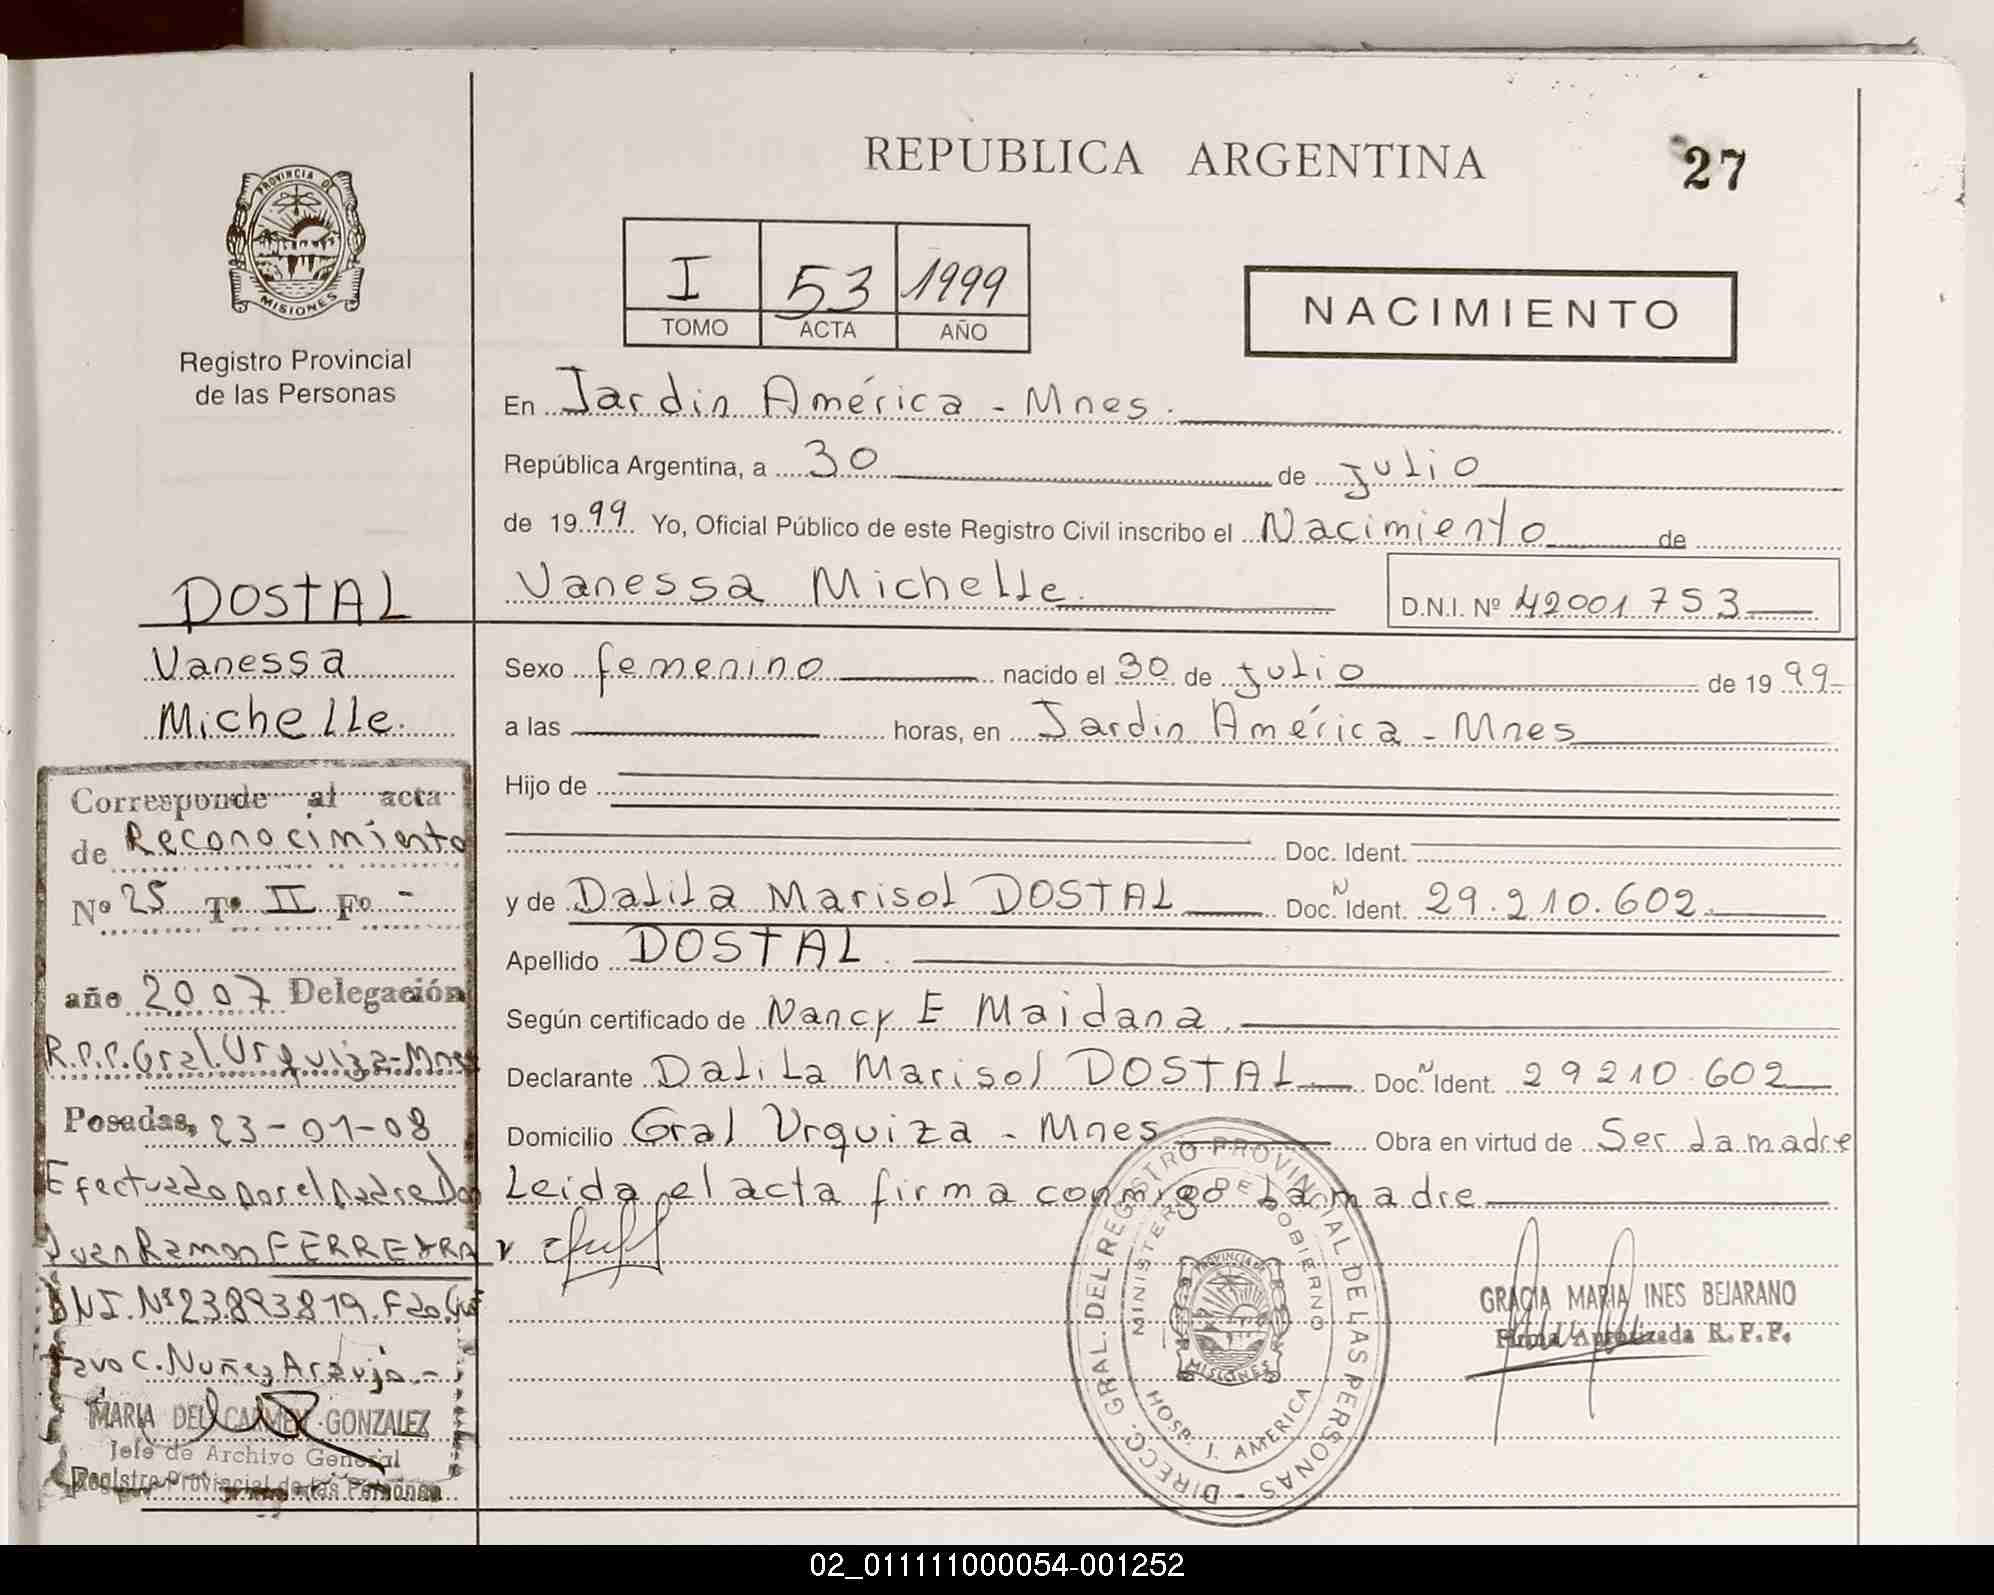 REPUBLICA ARGENTINA
27
PROVINCIA DE
MISIONES
Registro Provincial
de las Personas
I 53 1999
TOMO ACTA AÑO
NACIMIENTO
En Jardin América - Mnes.
República Argentina, a 30 de julio
de 1999 Yo, Oficial Público de este Registro Civil inscribo el Nacimiento de
Vanessa Michelle. D.N.I. Nº 42001753
Sexo femenino nacido el 30 de julio de 1999
a las horas, en Jardin América - Mnes
Hijo de
Doc. Ident.
y de Dalila Marisol DOSTAL Doc. N Ident. 29.210.602.
Apellido DOSTAL.
Según certificado de Nancy E Maidana.
Declarante Dalila Marisol DOSTAL Doc. N Ident. 29210.602
Domicilio Gral Urquiza - Mnes Obra en virtud de Ser la madre
Leida el acta firma conmigo la madre
DOSTAL
Vanessa
Michelle.
Corresponde al acta
de Reconocimiento
Nº 25 Tº II Fº -
año 2007 Delegación
R.P.P. Gral. Urquiza-Mnes
Posadas, 23-01-08
Efectuado por el padre Don
Juan Ramon FERREYRA y
DNI. Nº 23.893.819. Fdo. Gus
tavo C. Nuñez Araujo.-
MARIA DEL CARMEN GONZALEZ
Jefe de Archivo General
Registro Provincial de las Personas
DIRECC. GRAL. DEL REGISTRO PROVINCIAL DE LAS PERSONAS -
MINISTERIO DE GOBIERNO
PROVINCIA DE
MISIONES
HOSP. J. AMERICA
GRACIA MARIA INES BEJARANO
Firma Autorizada R.P.P.
02_011111000054-001252